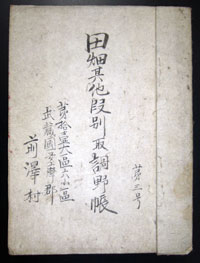 第三号
田畑其他段別取調野帳
拾壹大區六小區
武蔵國多摩郡
前澤村